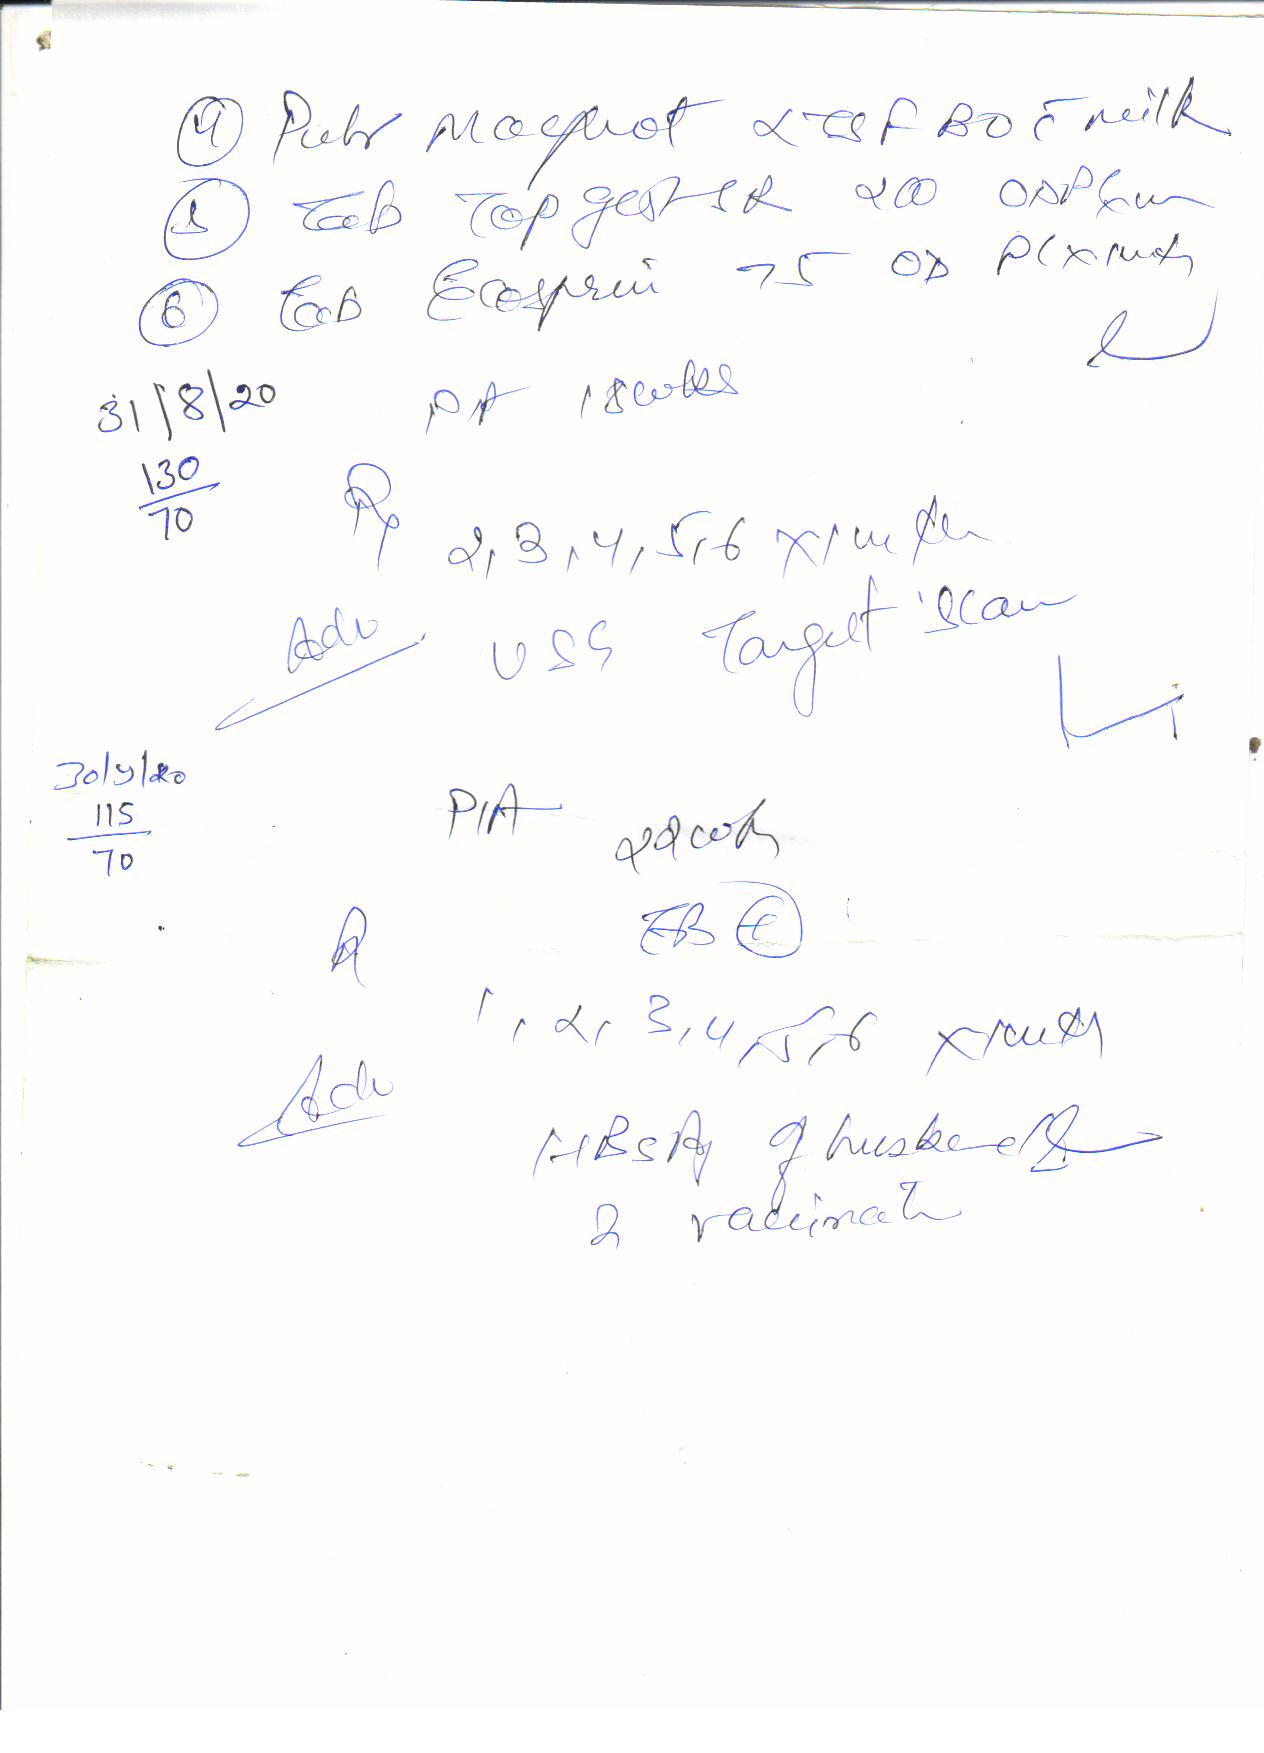 4 Pulv Macprot 2TSF BD c milk
5 Tab Topgest-SR 200 OD P
6 Tab Ecosprin 75 OD P( x 1 mth
31/8/20 PA 18 wks
130
70
Rx
2, 3, 4, 5, 6 x 1 mth
Adv USG Target Scan
30/9/20
115
70
P/A 22 wk
R
1, 2, 3, 4, 5, 6 x 1 mth
Adv
HBsAg of husband
2